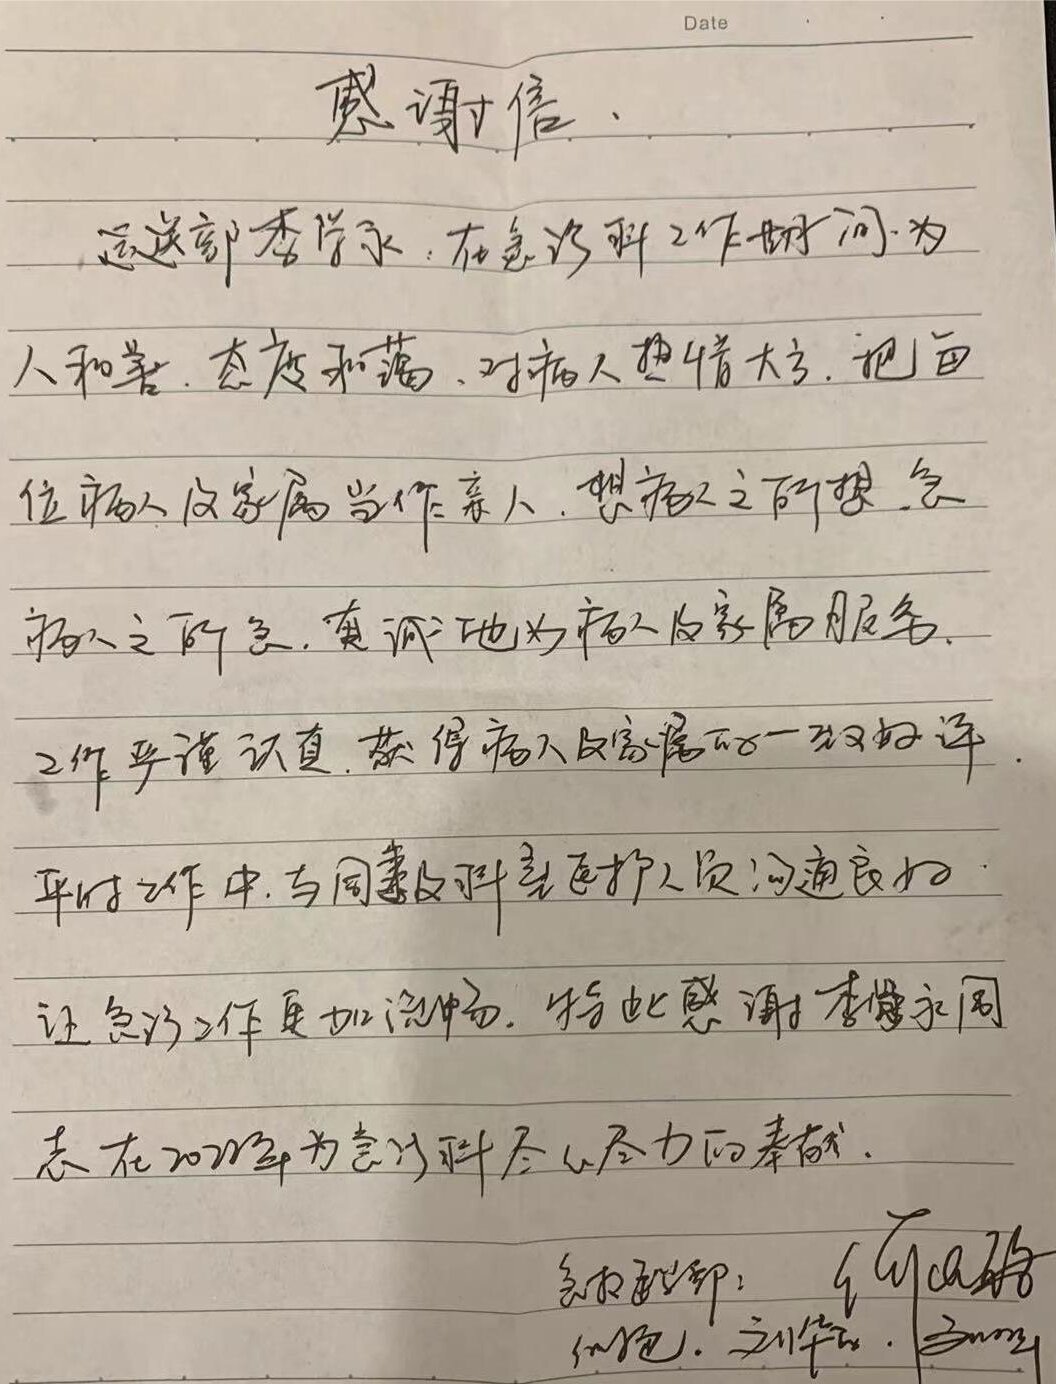 Date
感谢信.
运送部李学永,在急诊科工作期间.为
人和善.态度和蔼、对病人热情大方.把每
位病人及家属当作亲人.想病人之所想.急
病人之所急.真诚地为病人及家属服务.
工作严谨认真.获得病人及家属的一致好评.
平时工作中.与同事及科室医护人员沟通良好.
让急诊工作更加流畅.特此感谢李学永同
志在2022年为急诊科尽心尽力的奉献.
刘华